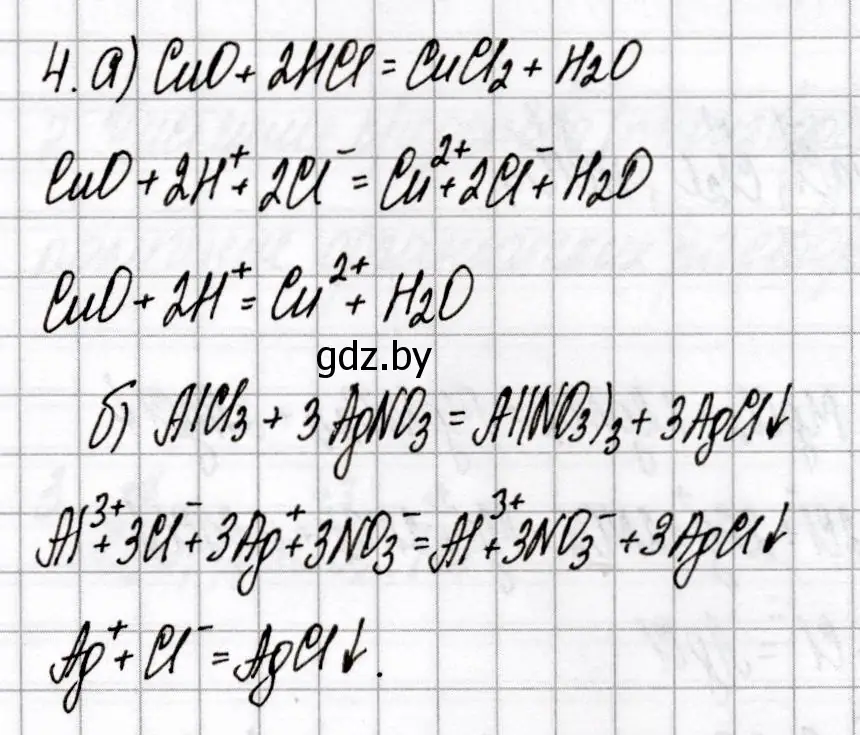 4. а) CuO + 2HCl = CuCl₂ + H₂O
CuO + 2H⁺ + 2Cl⁻ = Cu²⁺ + 2Cl⁻ + H₂O
CuO + 2H⁺ = Cu²⁺ + H₂O
gdz.by
б) AlCl₃ + 3AgNO₃ = Al(NO₃)₃ + 3AgCl↓
Al³⁺ + 3Cl⁻ + 3Ag⁺ + 3NO₃⁻ = Al³⁺ + 3NO₃⁻ + 3AgCl↓
Ag⁺ + Cl⁻ = AgCl↓.